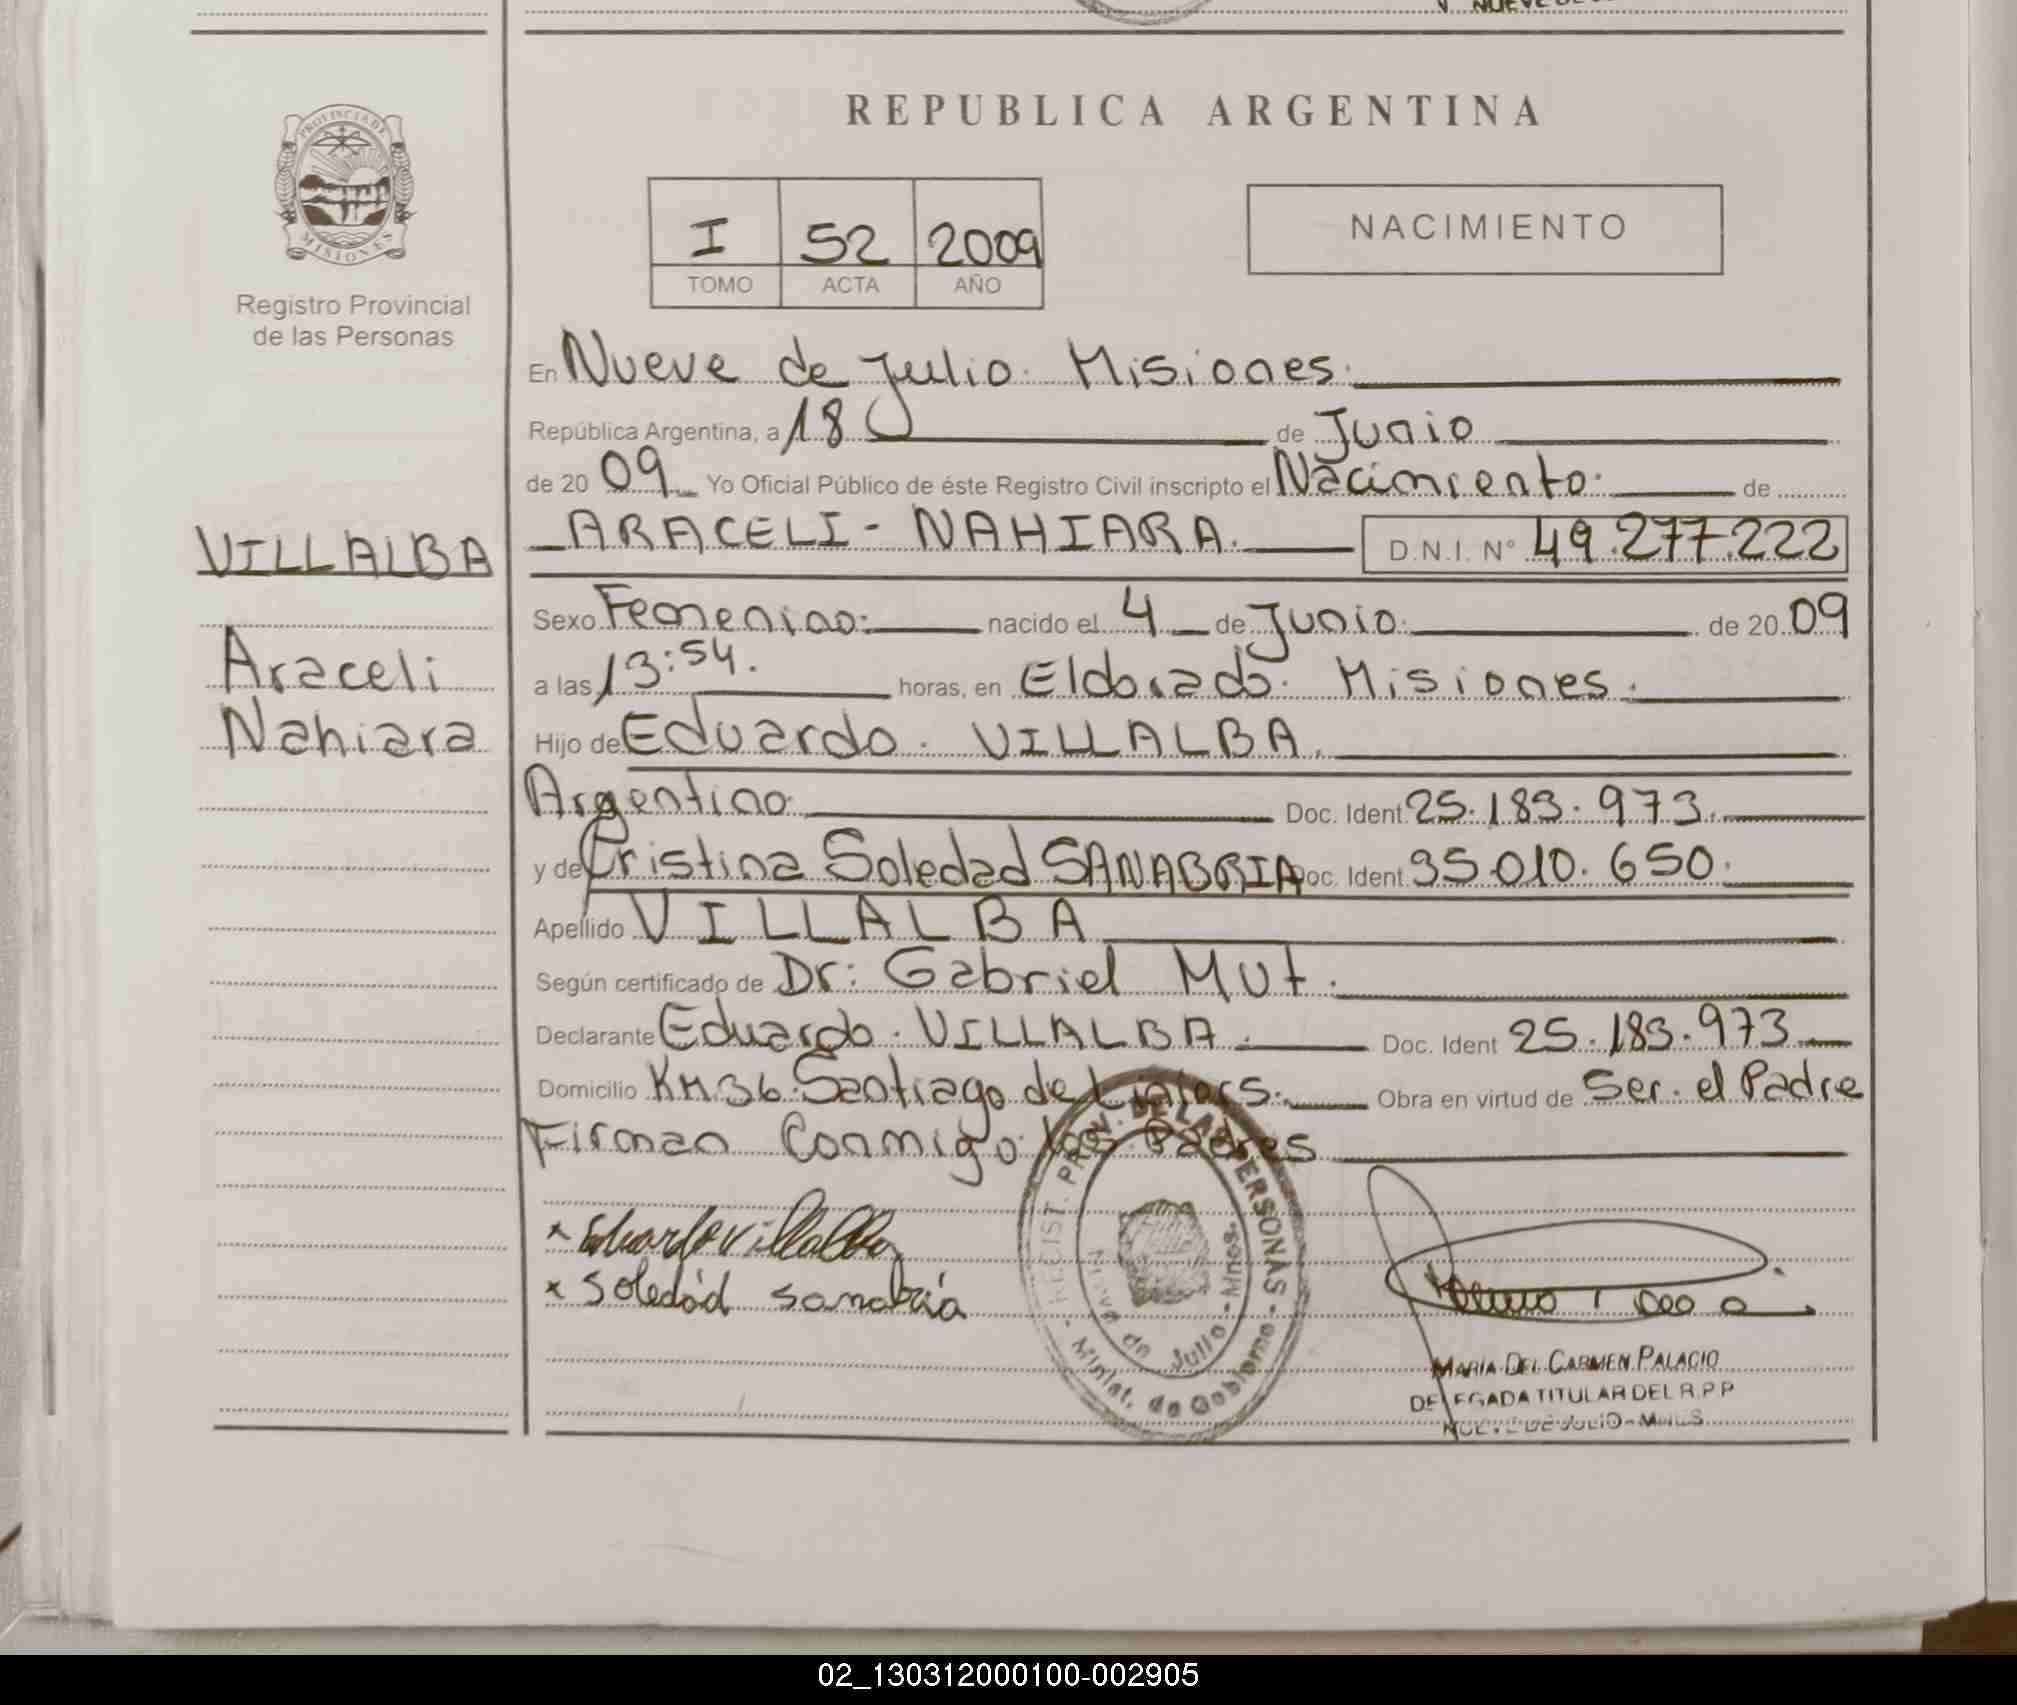 V. NUEVE DE
PROVINCIA DE
MISIONES
Registro Provincial
de las Personas
REPUBLICA ARGENTINA
I 52 2009
TOMO ACTA AÑO
NACIMIENTO
En Nueve de Julio. Misiones.
República Argentina, a 18 de Junio
de 20 09 Yo Oficial Público de éste Registro Civil inscripto el Nacimiento. de
VILLALBA
ARACELI - NAHIARA. D.N.I. N° 49.277.222
Sexo Femenino. nacido el 4 de Junio. de 20 09
Araceli
a las 13:54. horas, en Eldorado. Misiones.
Nahiara
Hijo de Eduardo. VILLALBA.
Argentino. Doc. Ident. 25.183.973.
y de Cristina Soledad SANABRIA Doc. Ident. 35.010.650.
Apellido VILLALBA
Según certificado de Dr: Gabriel Mut.
Declarante Eduardo. VILLALBA. Doc. Ident 25.183.973
Domicilio KM 36. Santiago de Liniers. Obra en virtud de Ser. el Padre
Firman Conmigo. los Padres
x Eduardo Villalba
x Soledad Sanabria
REGIST. PROV. DE LAS PERSONAS
- Minist. de Gobierno -
Nueve de Julio - Mnes.
MARIA DEL CARMEN PALACIO
DELEGADA TITULAR DEL R.P.P
NUEVE DE JULIO - MNES
02_130312000100-002905